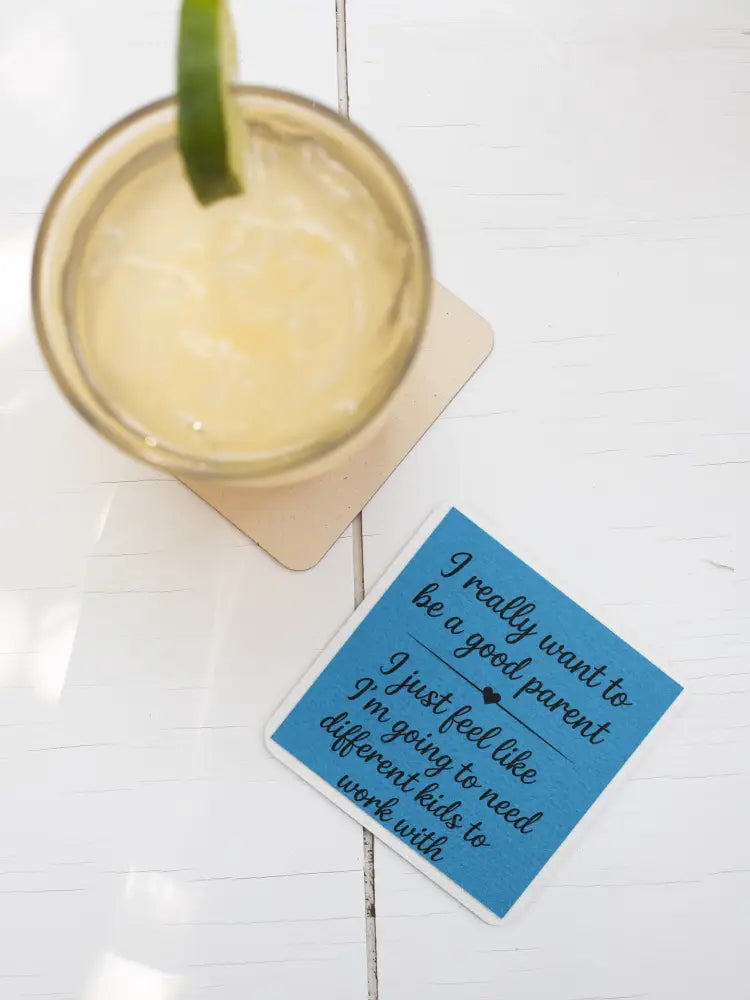 I really want to
be a good parent
I just feel like
I'm going to need
different kids to
work with